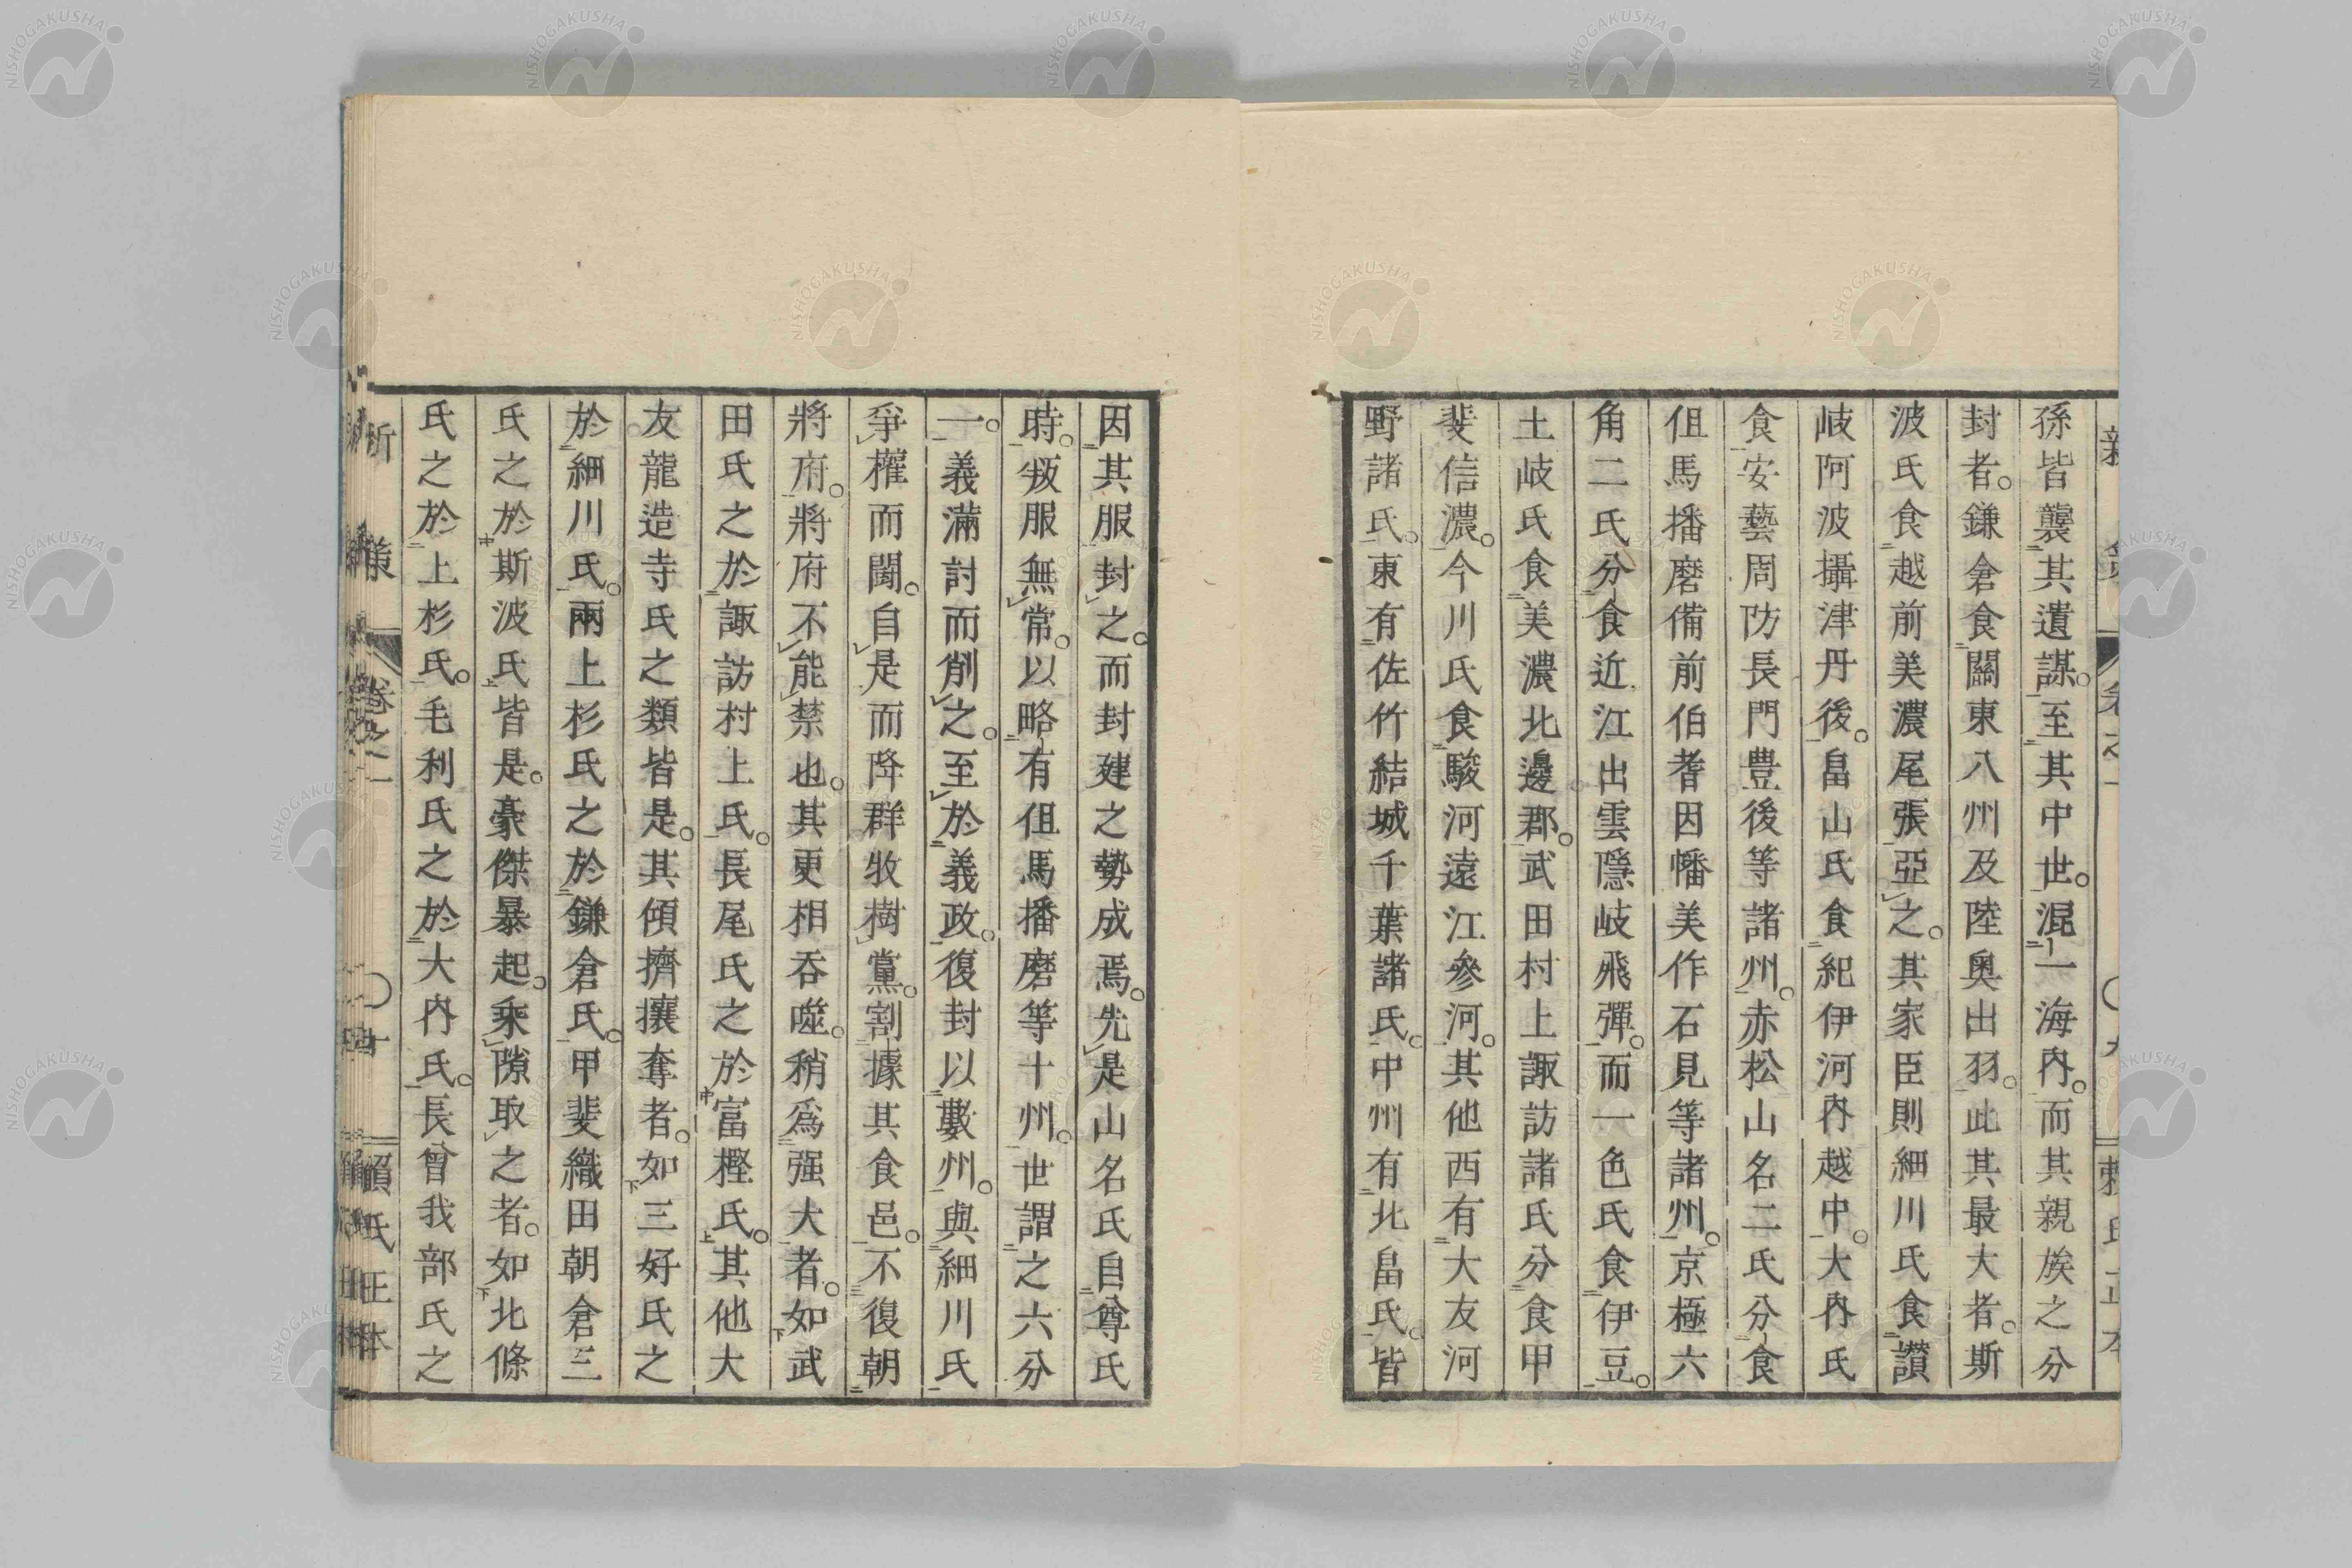 孫皆襲其遺謀。至其中世。混一海内。而其親族之分
封者。鎌倉食關東八州及陸奥出羽。此其最大者。斯
波氏食越前美濃尾張亞之。其家臣則細川氏食讃
岐阿波攝津丹後。畠山氏食紀伊河内越中。大内氏
食安藝周防長門豊後等諸州。赤松山名二氏分食
但馬播磨備前伯耆因幡美作石見等諸州。京極六
角二氏分食近江出雲隱岐飛彈。而一色氏食伊豆。
土岐氏食美濃北邊郡。武田村上諏訪諸氏分食甲
斐信濃。今川氏食駿河遠江參河。其他西有大友河
野諸氏。東有佐竹結城千葉諸氏。中州有北畠氏。皆
因其服封之。而封建之勢成焉。先是山名氏自尊氏
時。叛服無常。以略有但馬播磨等十州。世謂之六分
一。義滿討而削之。至於義政。復封以數州。與細川氏
爭權而鬩。自是而降群牧樹黨。割據其食邑。不復朝
將府。將府不能禁也。其更相吞噬。稍爲强大者。如武
田氏之於諏訪村上氏。長尾氏之於富樫氏。其他大
友龍造寺氏之類皆是。其傾擠攘奪者。如三好氏之
於細川氏。兩上杉氏之於鎌倉氏。甲斐織田朝倉三
氏之於斯波氏皆是。豪傑暴起。乘隙取之者。如北條
氏之於上杉氏。毛利氏之於大内氏。長曾我部氏之
新策 卷之一 〇十 賴氏正本
NISHOGAKUSHA